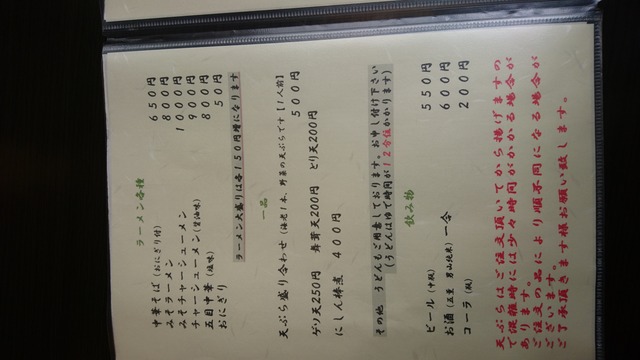 ラーメン各種
中華そば(おにぎり付) 650円
みそラーメン 800円
みそチャーシューメン 1000円
チャーシューメン(醤油味) 900円
五目中華(塩味) 800円
おにぎり 50円
ラーメン大盛りは各150円増になります
一品
天ぷら盛り合わせ(海老1本、野菜の天ぷらです【1人前】 500円
ゲソ天250円 舞茸天200円 とり天200円
にしん棒煮 400円
その他 うどんもご用意しております。お申し付け下さい
(うどんはゆで時間が12分位かかります)
飲み物
ビール(中瓶) 550円
お酒(五重 男山純米)一合 600円
コーラ(瓶) 200円
天ぷらはご注文頂いてから揚げますの
で混雑時には少々時間がかかる場合が
あります。
ご注文の品により順不同になる場合が
ございます。
ご了承頂きます様お願い致します。